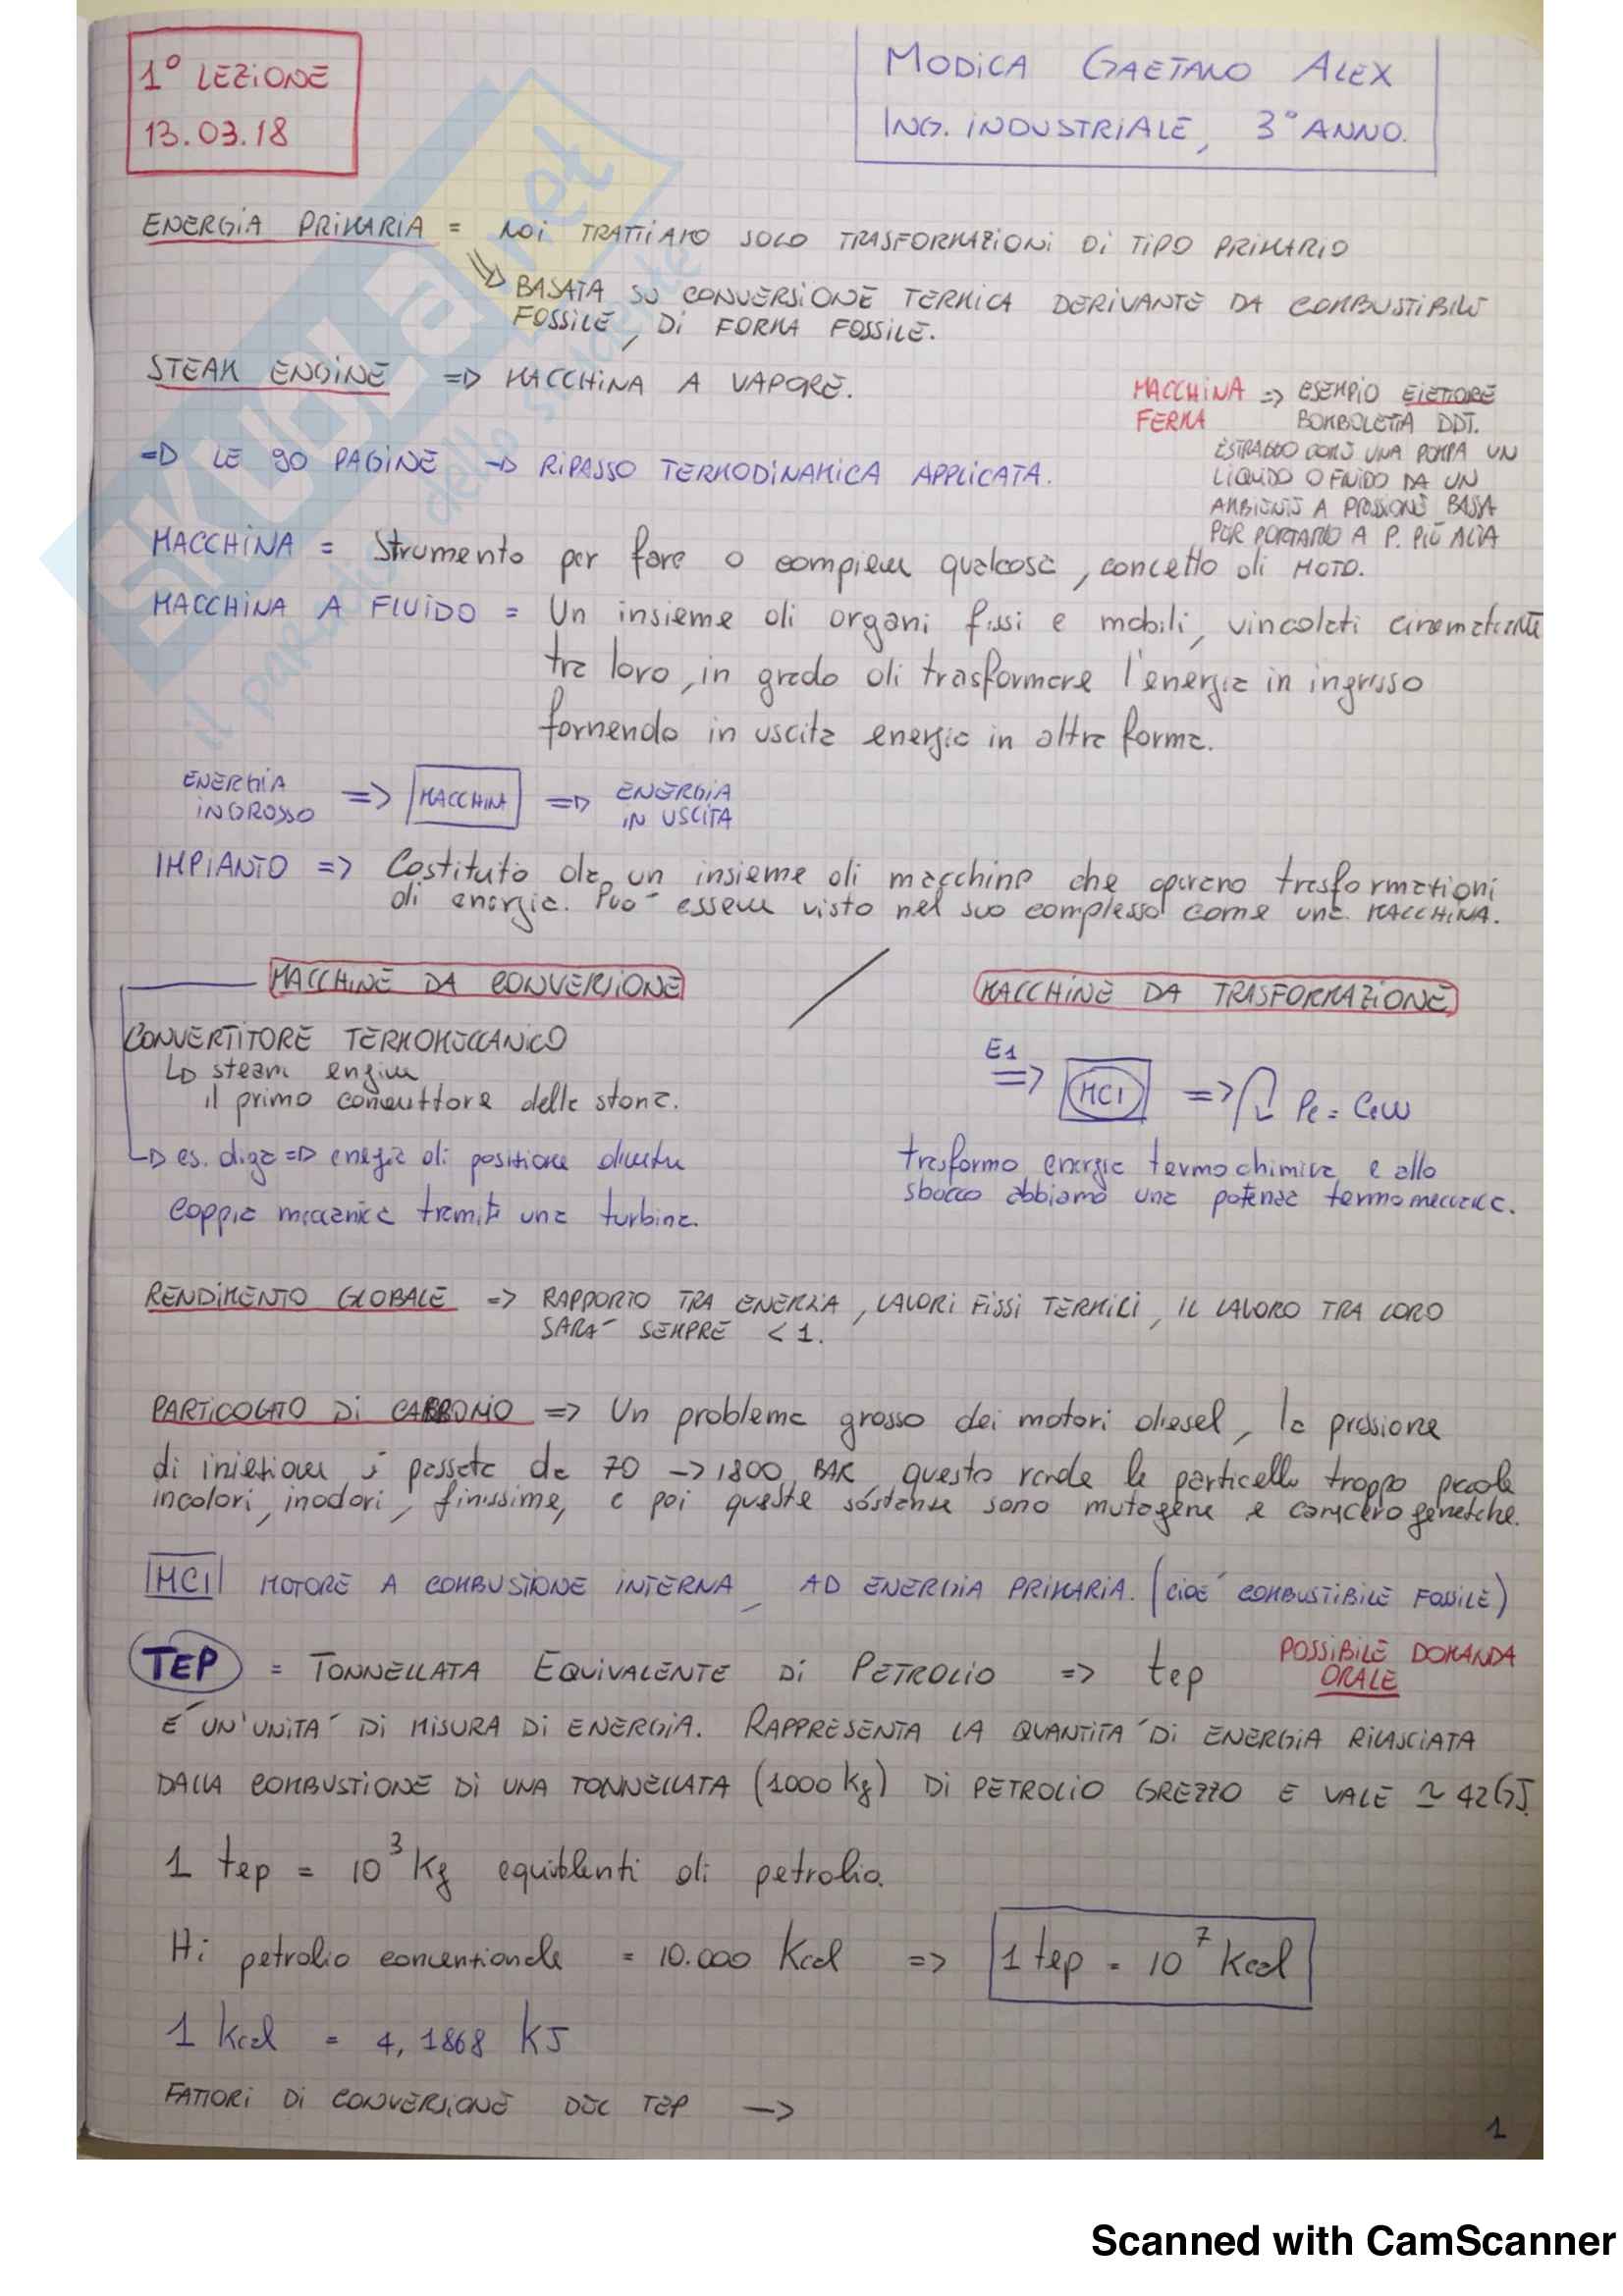 1° LEZIONE
13.03.18
MODICA GAETANO ALEX
ING. INDUSTRIALE, 3° ANNO.
ENERGIA PRIMARIA = NOI TRATTIAMO SOLO TRASFORMAZIONI DI TIPO PRIMARIO
BASATA SU CONVERSIONE TERMICA DERIVANTE DA COMBUSTIBILE
FOSSILE, DI FORMA FOSSILE.
STEAM ENGINE => MACCHINA A VAPORE.
MACCHINA => ESEMPIO EIETTORE
FERMA BOMBOLETTA DDT.
ESTRAGGO CON UNA POMPA UN
LIQUIDO O FLUIDO DA UN
AMBIENTE A PRESSIONE BASSA
PER PORTARLO A P. PIÙ ALTA
=> LE 90 PAGINE → RIPASSO TERMODINAMICA APPLICATA.
MACCHINA = Strumento per fare o compiere qualcosa, concetto di MOTO.
MACCHINA A FLUIDO = Un insieme di organi fissi e mobili, vincolati cinematicamente
tra loro, in grado di trasformare l'energia in ingresso
fornendo in uscita energia in altra forma.
ENERGIA
INGRESSO => MACCHINA => ENERGIA
IN USCITA
IMPIANTO => Costituto da un insieme di macchine che operano trasformazioni
di energia. Puo' essere visto nel suo complesso come una MACCHINA.
MACCHINE DA CONVERSIONE / MACCHINE DA TRASFORMAZIONE
CONVERTITORE TERMOMECCANICO
steam engine
il primo convertitore della storia.
es. diga => energia di posizione diventa
coppia meccanica tramite una turbina.
E1 => MCI => Pe = Ceω
trasformo energia termochimica e allo
sbocco abbiamo una potenza termomeccanica.
RENDIMENTO GLOBALE => RAPPORTO TRA ENERGIA, LAVORI FISSI TERMICI, IL LAVORO TRA LORO
SARA' SEMPRE < 1.
PARTICOLATO DI CARBONIO => Un problema grosso dei motori diesel, la pressione
di iniezione è passata da 70 → 1800 BAR questo rende le particelle troppo piccole
incolori, inodori, finissime, e poi queste sostanze sono mutogene e cancerogenetiche.
MCI MOTORE A COMBUSTIONE INTERNA, AD ENERGIA PRIMARIA. (CIOE' COMBUSTIBILE FOSSILE)
TEP = TONNELLATA EQUIVALENTE DI PETROLIO => tep
POSSIBILE DOMANDA
ORALE
E' UN'UNITA' DI MISURA DI ENERGIA. RAPPRESENTA LA QUANTITA' DI ENERGIA RILASCIATA
DALLA COMBUSTIONE DI UNA TONNELLATA (1000 Kg) DI PETROLIO GREZZO E VALE ≃ 42GJ.
1 tep = 10³ Kg equivalenti di petrolio.
Hi petrolio convenzionale = 10.000 Kcal => 1 tep = 10⁷ Kcal
1 kcal = 4,1868 KJ
FATTORI DI CONVERSIONE DEL TEP →
1
SKUOLA.net
il paradiso dello studente
Scanned with CamScanner